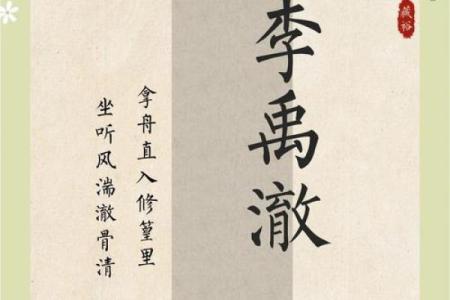 藏裕
李禹澈
拿舟直入修篁里
坐听风湍澈骨清